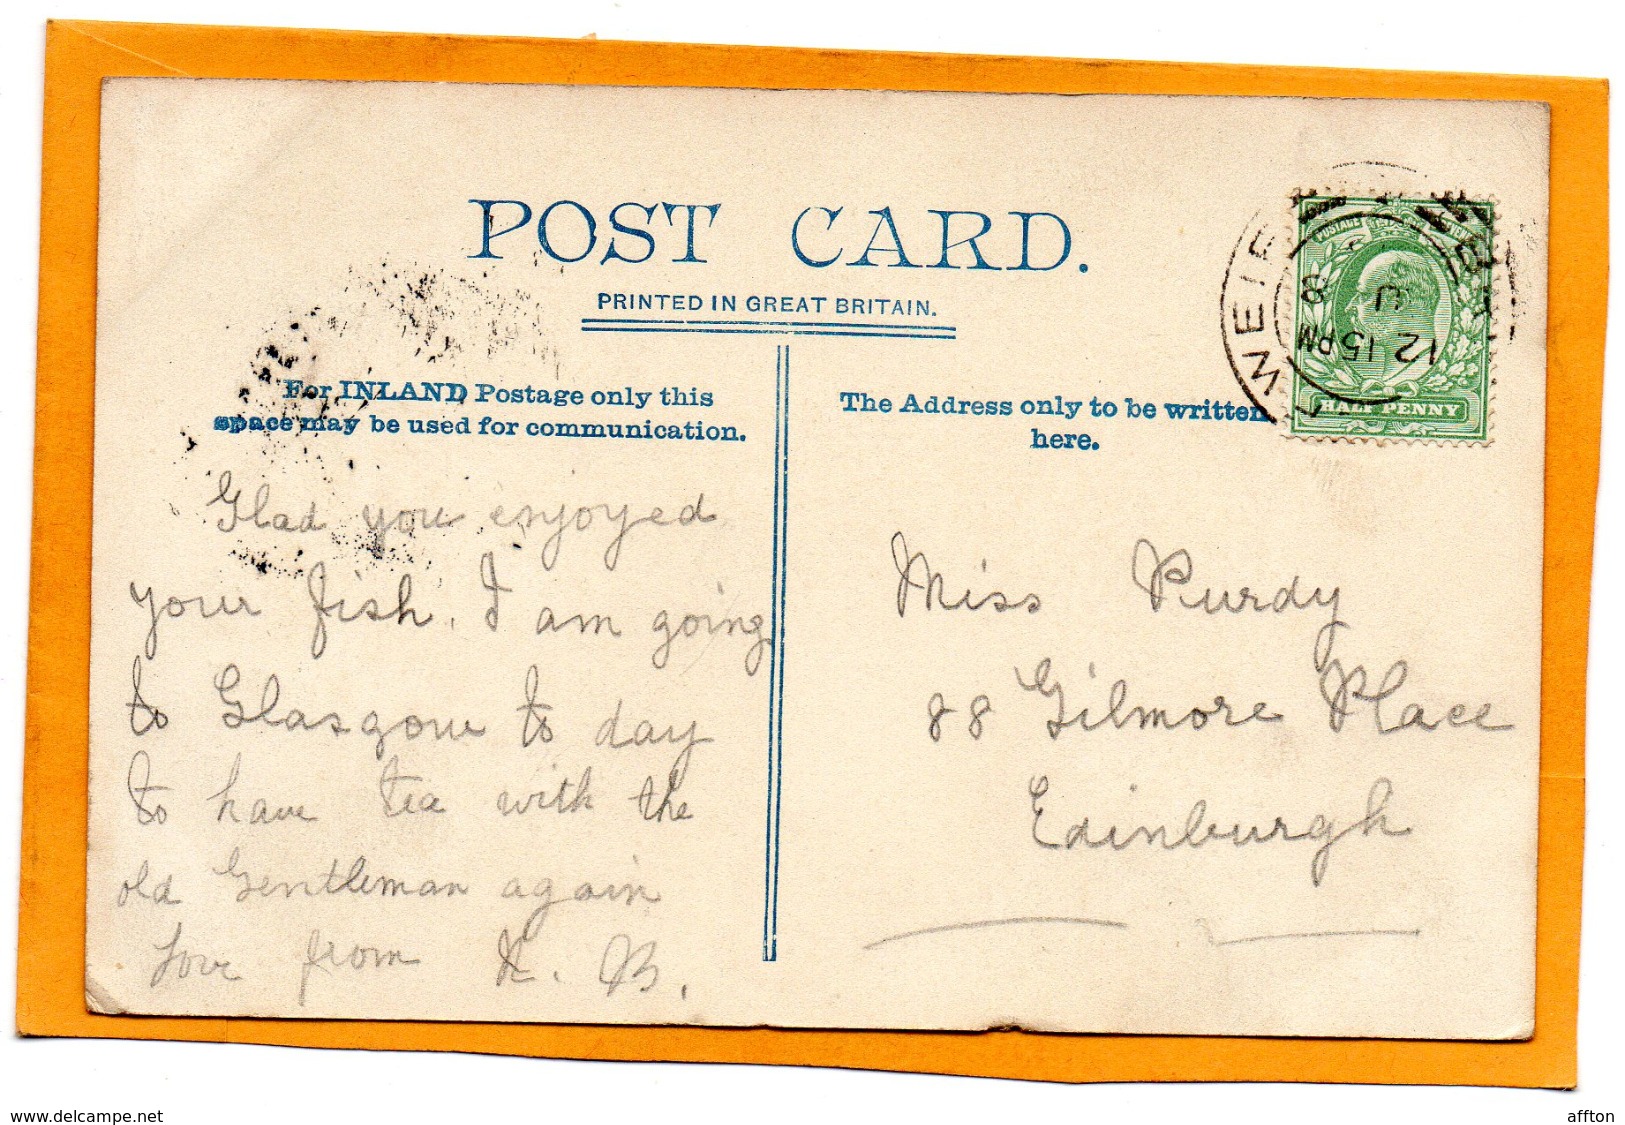 POST CARD.
PRINTED IN GREAT BRITAIN.
For INLAND Postage only this
space may be used for communication.
The Address only to be written
here.
WEIR
12 15PM
HALF PENNY
Glad you enjoyed
your fish. I am going
to Glasgow to day
to have tea with the
old Gentleman again
Love from K. B.
Miss Purdy
88 Gilmore Place
Edinburgh
www.delcampe.net
affton